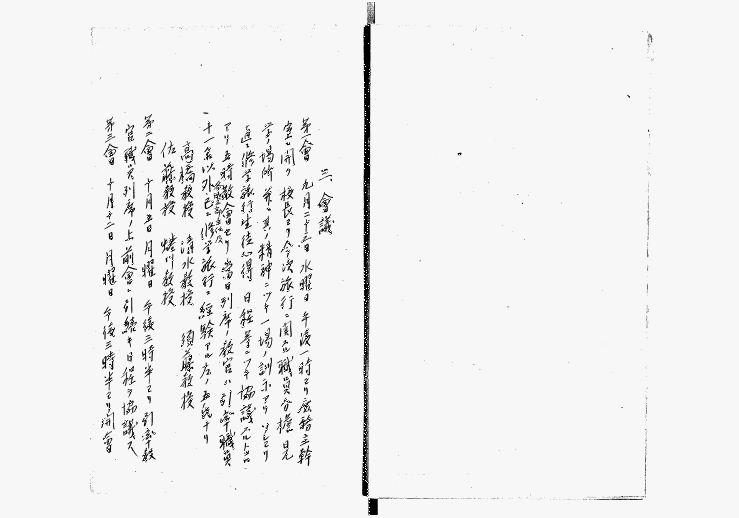 三、會議
第一會 九月二十三日 水曜日 午後一時ヨリ
室ニ開ク 校長ヨリ今次旅行ニ関スル職員分擔 日光
学ノ場所 並ニ其ノ精神ニツキ一場ノ訓示アリ ソレヨリ
直ニ修学旅行生徒心得 日程等ニツキ協議スル
アリ五時散會セリ 當日列席ノ教官ハ引率職員
十一名以外已ニ修学旅行ニ経験アル左ノ五氏ナリ
高橋教授 清水教授 須藤教授
佐藤教授 蜷川教授
第二會 十月五日 月曜日 午後三時半ヨリ 引率教
官職員列席ノ上前會ニ引続キ日程ヲ協議ス
第三會 十月十二日 月曜日 午後三時半ヨリ開會